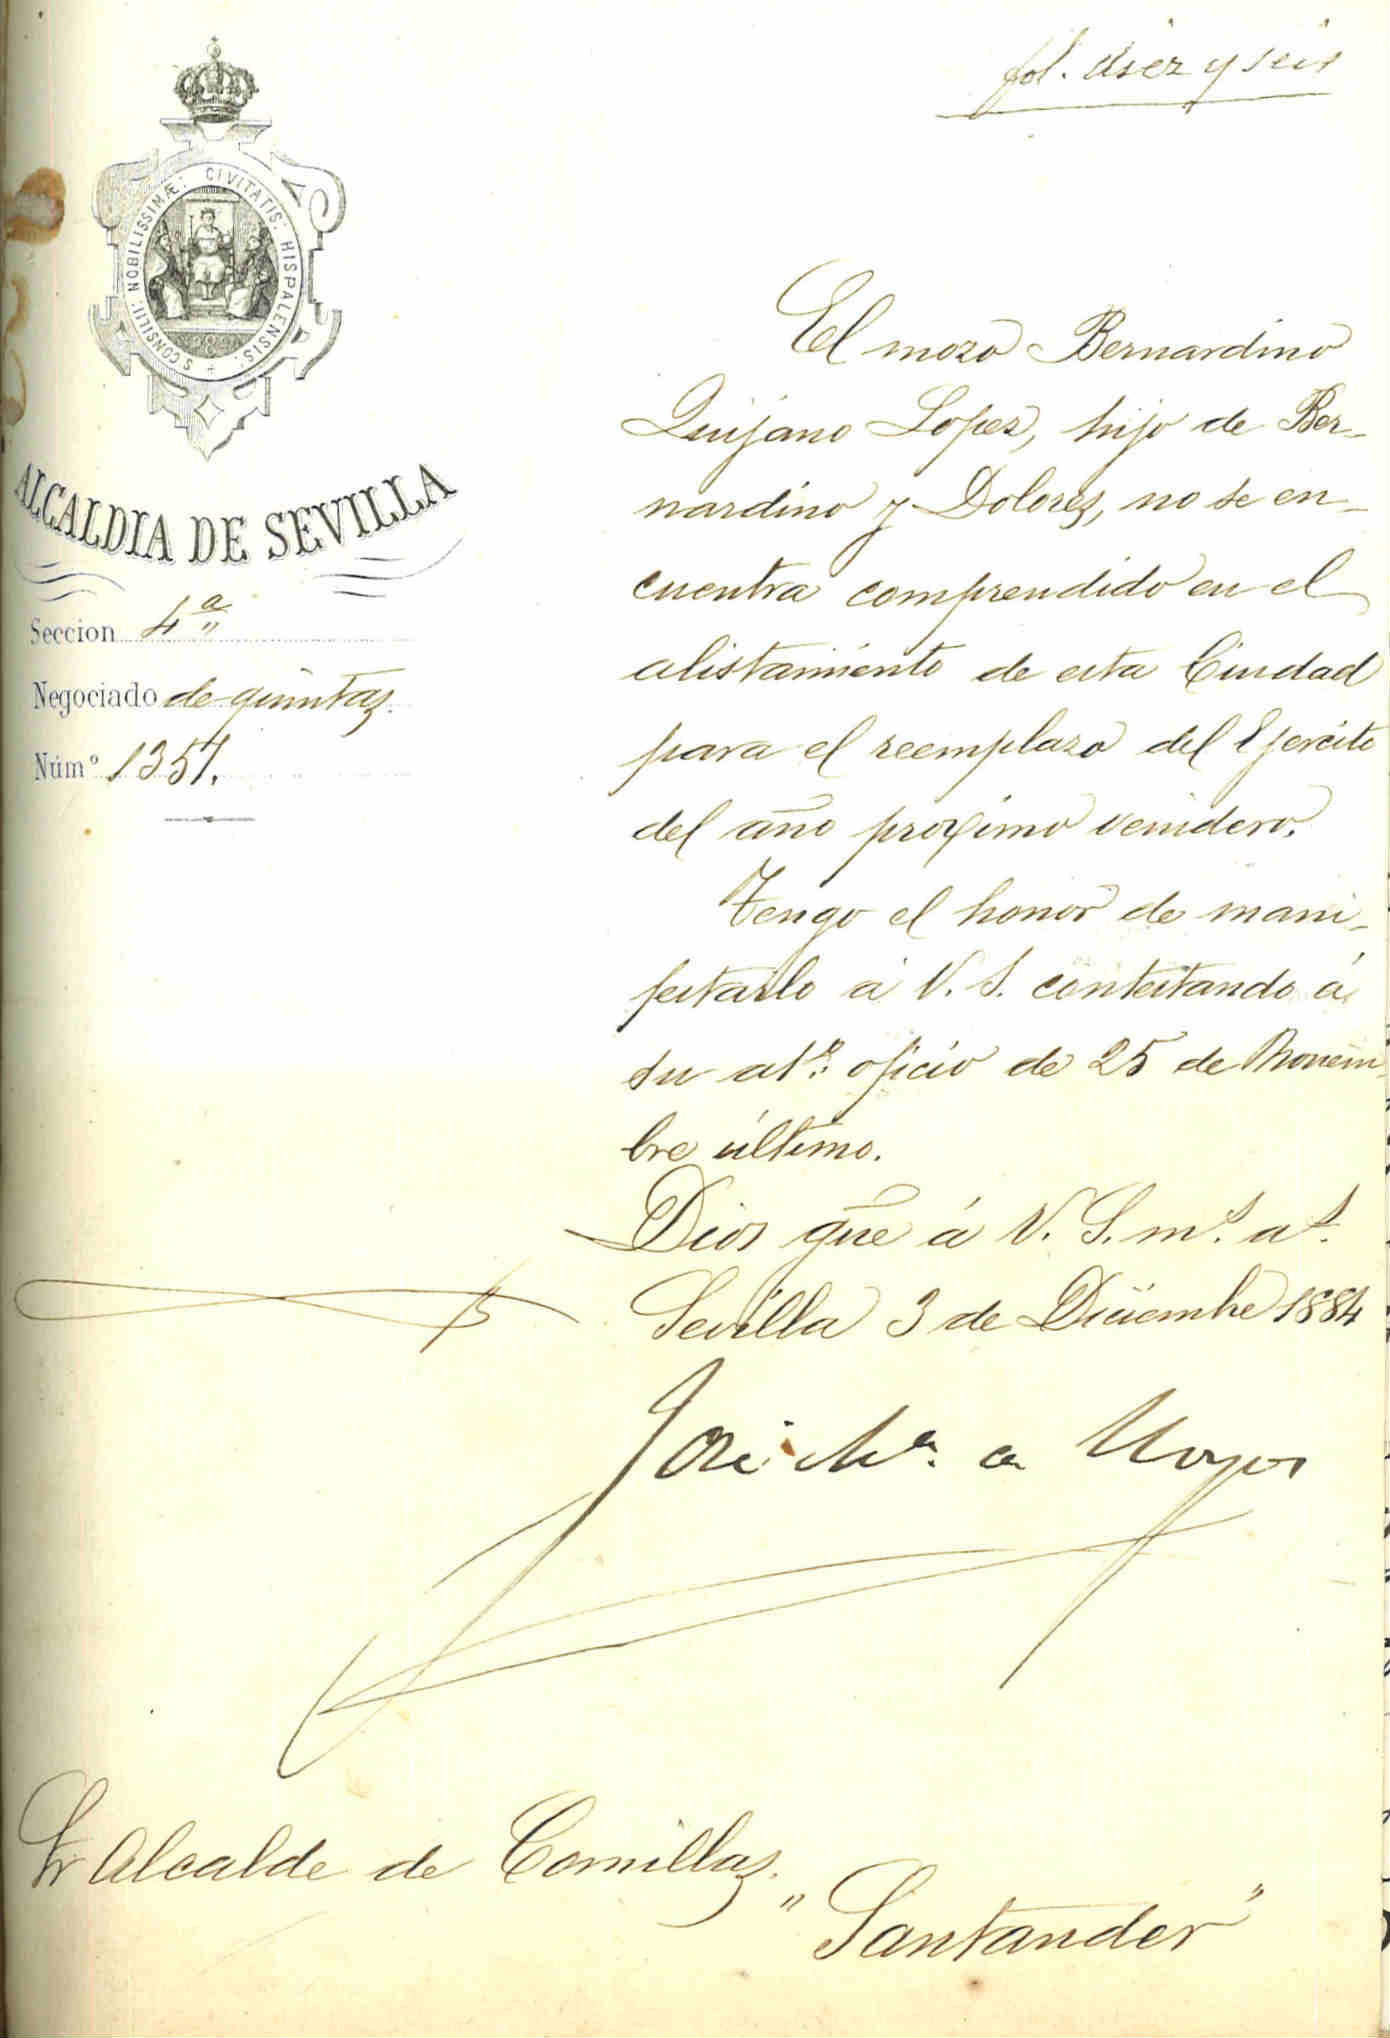 fol. diez y seis
S. CONSILII: NOBILISSIMÆ: CIVITATIS: HISPALENSIS:
ALCALDIA DE SEVILLA
Seccion 4ª
Negociado de quintas.
Núm° 1357.
El mozo Bernardino
Quijano Lopez, hijo de Ber-
nardino y Dolores, no se en-
cuentra comprendido en el
alistamiento de esta Ciudad
para el reemplazo del Ejercito
del año proximo venidero.
Tengo el honor de mani-
festarlo á V. S. contestando á
su at.º oficio de 25 de Noviem-
bre último.
Dios güe á V. S. m.s a.s
Sevilla 3 de Diciembre 1884
José Mª. a
Sr Alcalde de Comillas.
"Santander"